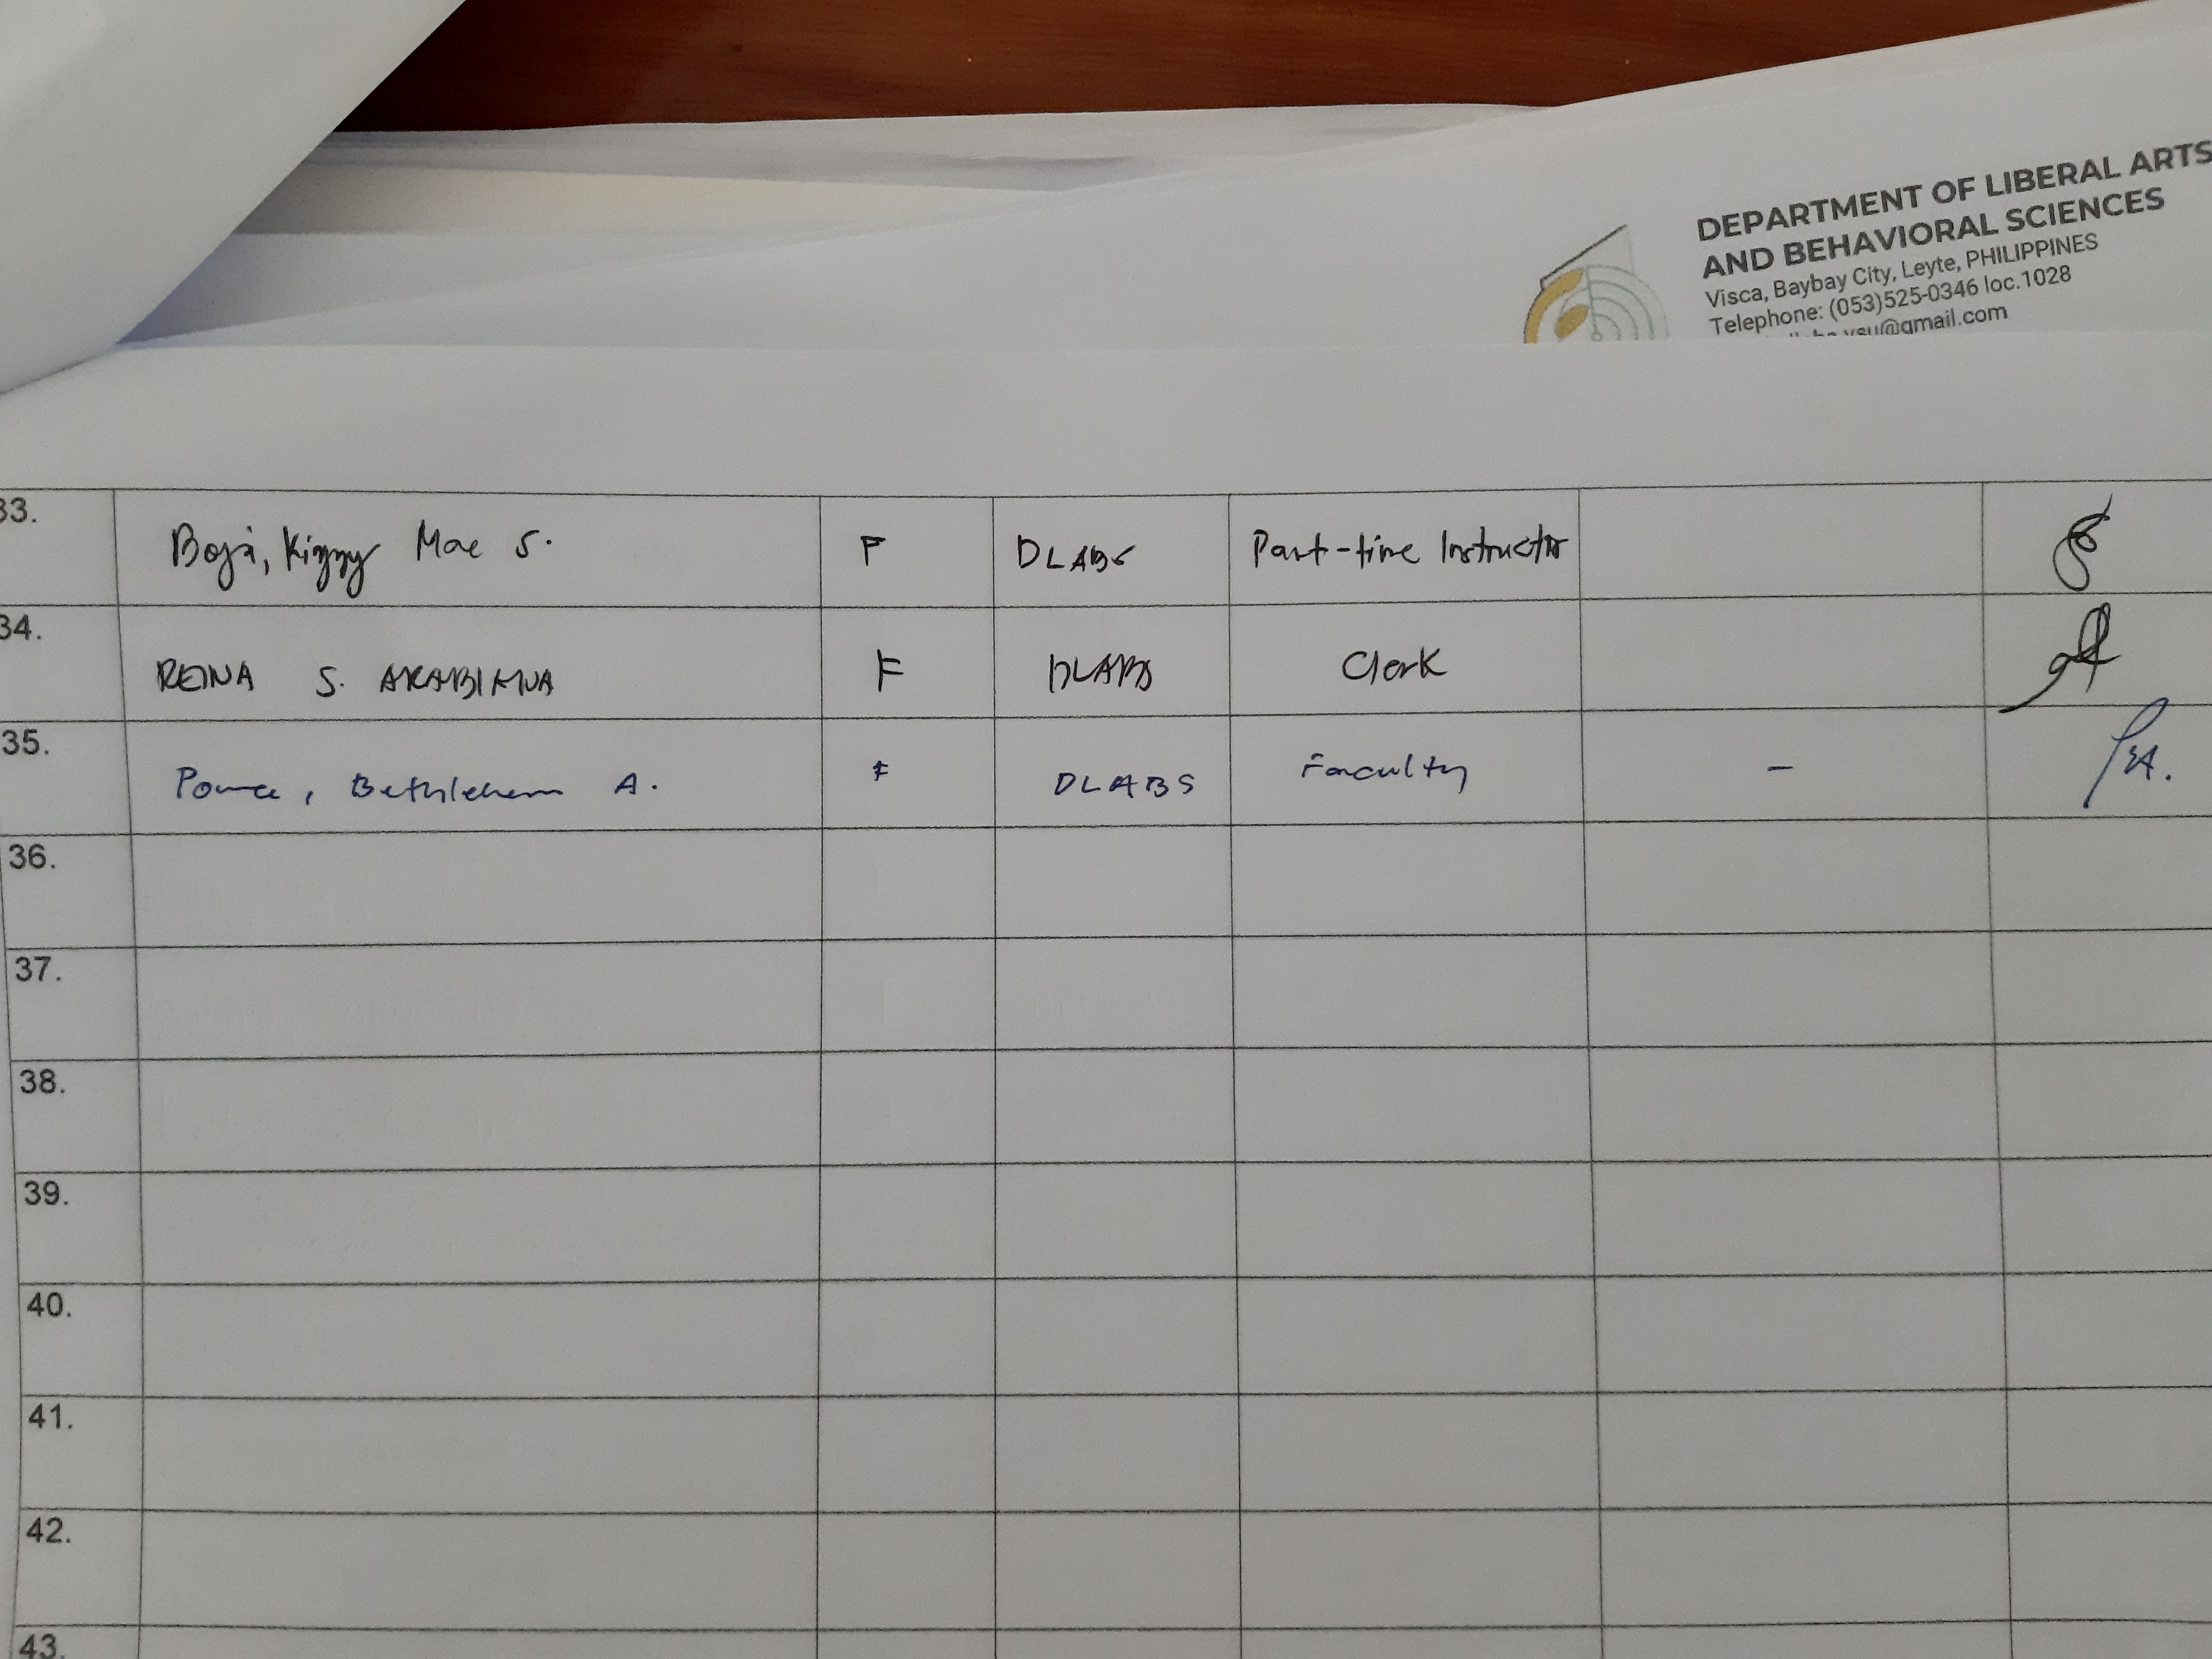 DEPARTMENT OF LIBERAL ARTS
AND BEHAVIORAL SCIENCES
Visca, Baybay City, Leyte, PHILIPPINES
Telephone: (053)525-0346 loc.1028
vsu@gmail.com
33. Kizzy Mae S. F DLABS Part-time Instructor
34. REINA S. F DLABS Clerk
35. Ponce, Bethlehem A. F DLABS Faculty -
36.
37.
38.
39.
40.
41.
42.
43.